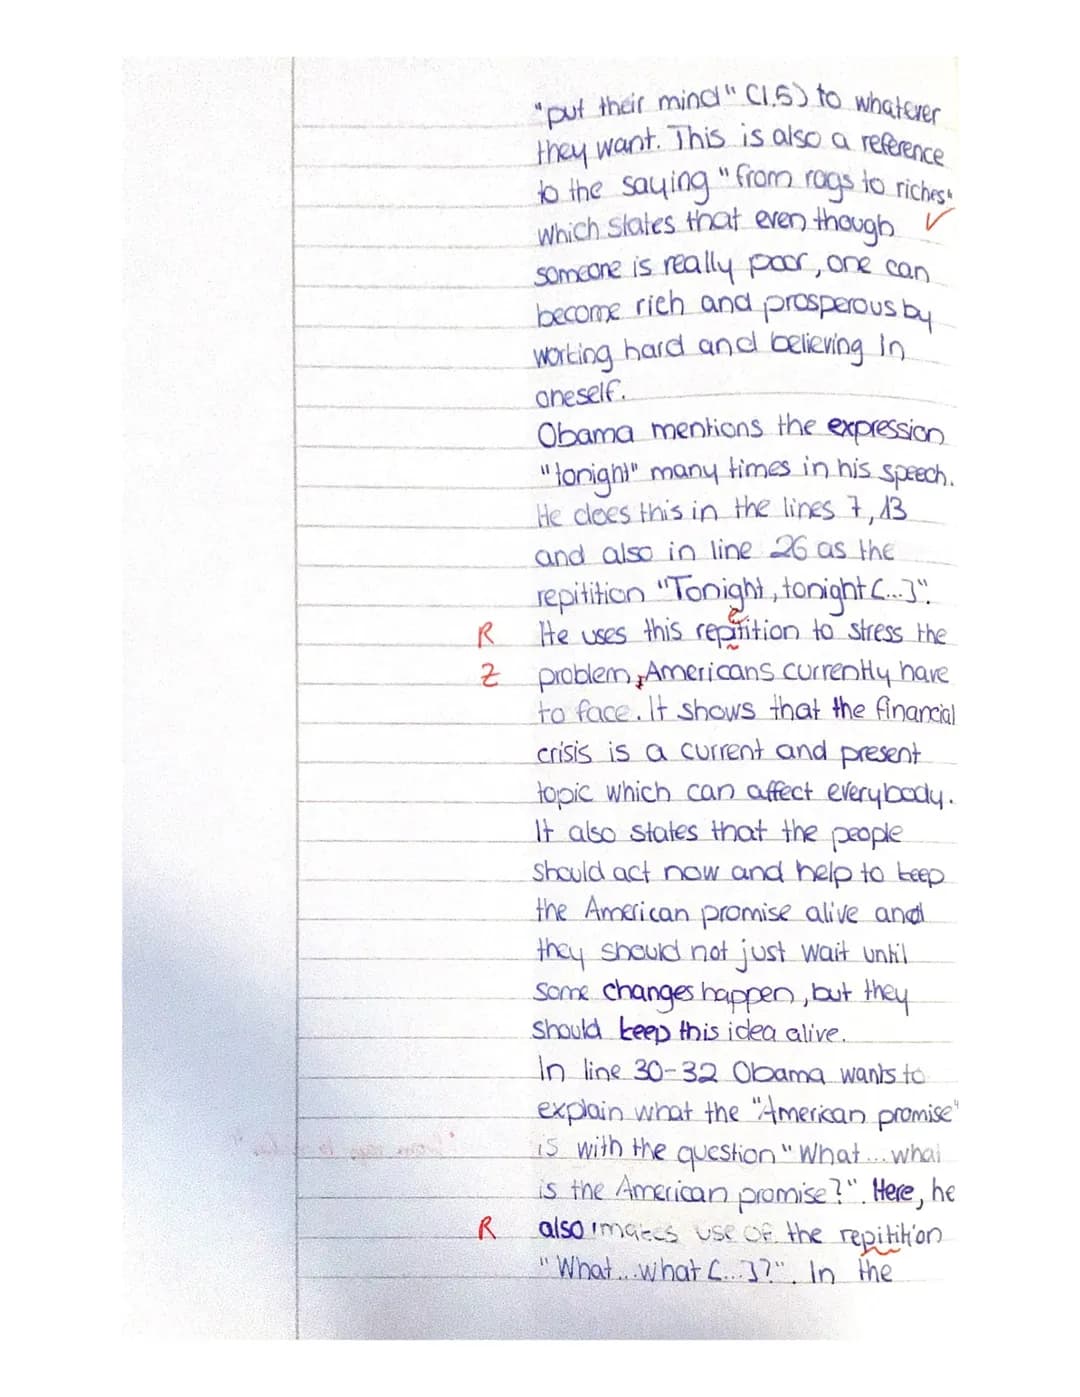 "put their mind" (l.5) to whatever
they want. This is also a reference
to the saying "from rags to riches"
which states that even though ✓
someone is really poor, one can
become rich and prosperous by
working hard and believing in
oneself.
Obama mentions the expression
"tonight" many times in his speech.
He does this in the lines 7, 13
and also in line 26 as the
repitition "Tonight, tonight [...]".
R He uses this repitition to stress the
e
Z problem, Americans currently have
to face. It shows that the financial
crisis is a current and present
topic which can affect everybody.
It also states that the people
should act now and help to keep
the American promise alive and
they should not just wait until
some changes happen, but they
should keep this idea alive.
In line 30-32 Obama wants to
explain what the "American promise"
is with the question "What...what
is the American promise?". Here, he
R also makes use of the repitition
"What...what [...]?". In the